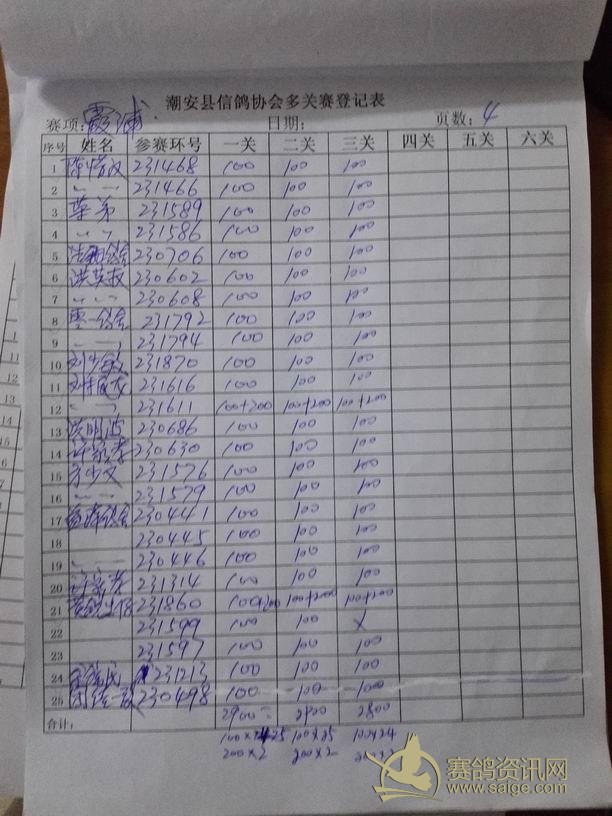 潮安县信鸽协会多关赛登记表
赛项: 霞浦 日期: 页数: 4
序号 姓名 参赛环号 一关 二关 三关 四关 五关 六关
1 231468 100 100 100
2 〃 231466 100 100 100
3 231589 100 100 100
4 〃 231586 100 100 100
5 230706 100 100 100
6 230602 100 100 100
7 〃 230608 100 100 100
8 231792 100 100 100
9 〃 231794 100 100 100
10 刘少敏 231870 100 100 100
11 231616 100 100 100
12 〃 231611 100+200 100+200 100+200
13 洪明鸿 230686 100 100 100
14 230630 100 100 100
15 方少文 231576 100 100 100
16 〃 231579 100 100 100
17 230441 100 100 100
18 230445 100 100 100
19 〃 230446 100 100 100
20 231314 100 100 100
21 231860 100+200 100+200 100+200
22 231599 100 100 ×
23 231597 100 100 100
24 231213 100 100 100
25 230498 100 100 100
合计: 2900 2900 2800
100×25 100×25 100×24
200×2 200×2 200×2
赛鸽资讯网
www.saige.com